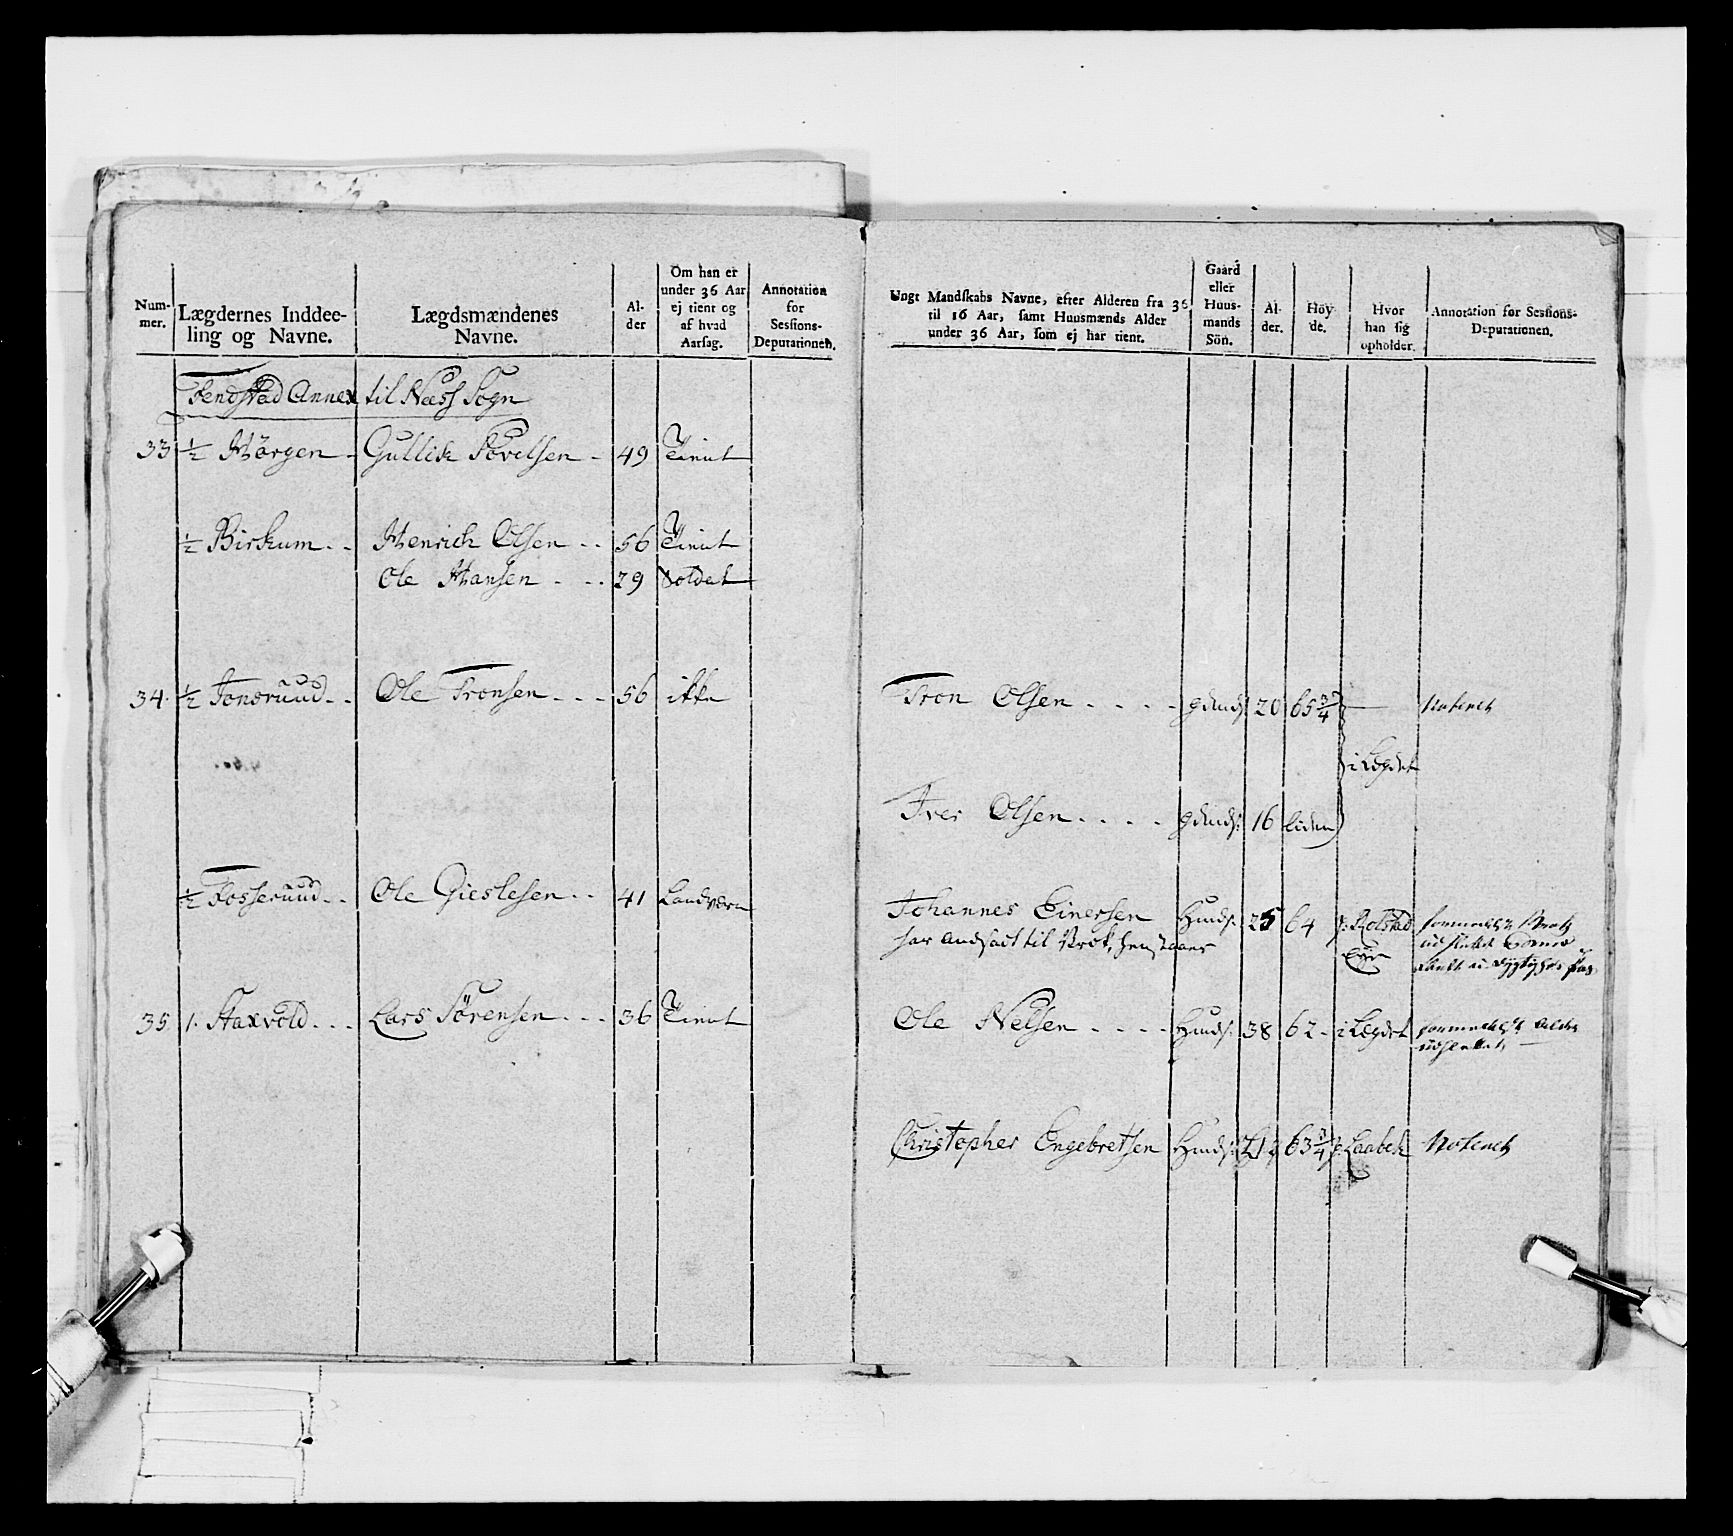 Num-
mer.
Lægdernes Inddee-
ling og Navne.
Lægdsmændenes
Navne.
Al-
der
Om han er
under 36 Aar
ej tient og
af hvad
Aarsag.
Annotation
for
Sessions-
Deputationen.
Fendstad Annex til Næss Sogn
33 ½ Hørgen - Gullik Povelsen - 49 Tient
½ Birkum - - Henrich Olsen - - 56 Tient
Ole Hansen - - - 29 Soldat
34. ½ Tonsruud - - Ole Tronsen - - - 56 ikke
½ Fosseruud - - Ole Gieslesen - - 41 Landværn
35 1. Haxvold - - - Lars Sörensen - - - 36 Tient
Ungt Mandskabs Navne, efter Alderen fra 36
til 16 Aar, samt Huusmænds Alder
under 36 Aar, som ej har tient.
Gaard
eller
Huus-
mands
Sön.
Al-
der.
Höy
de.
Hvor
han sig
opholder.
Annotation for Sessions-
Deputationen.
Tron Olsen - - - - gdmds: 20 65 ¾ — Noteret
i Lægdet
Iver Olsen - - - - gdmds: 16 liden
Johannes Einersen Huuds: 25 64 p: Rolstad
Eye
Ole Nelsen - - - - Huuds: 38 62 - i Lægdet
Christopher Engebretsen Huuds: 21 63 ¾ p: Laabek Noteret